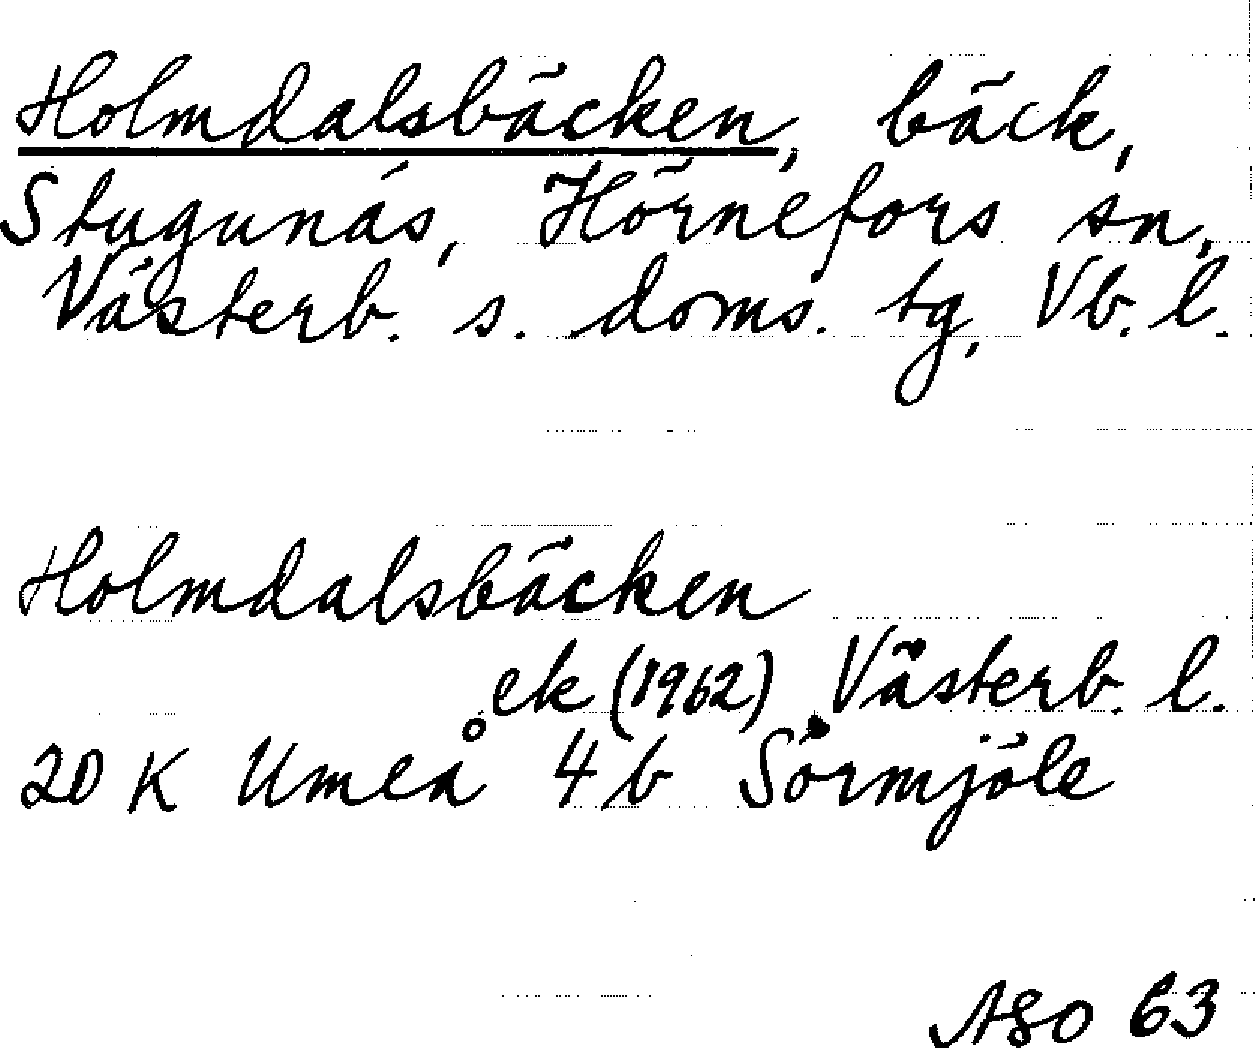 Holmdalsbäcken, bäck,
Stugunäs, Hörnefors sn,
Västerb. s. doms. tg, Vb. l.
Holmdalsbäcken
ek (1962) Västerb. l.
20 K Umeå 4 b Sörmjöle
ASO 63